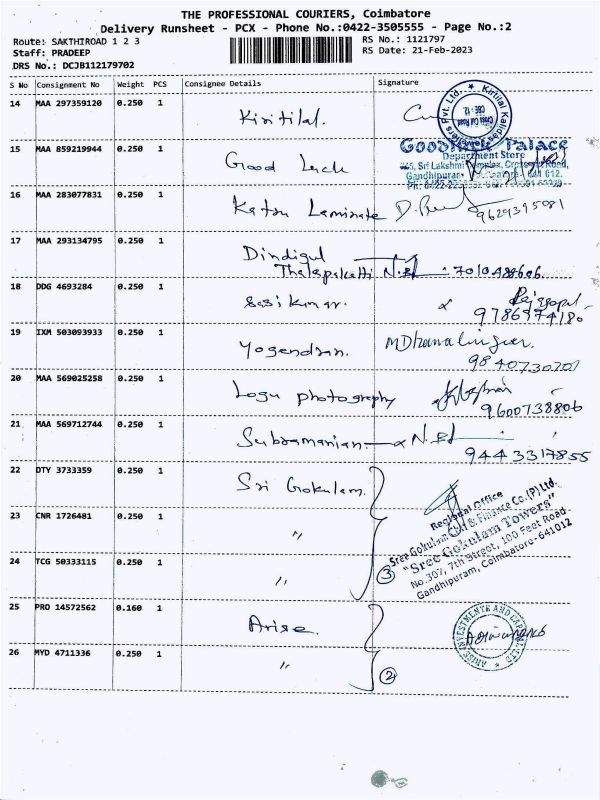 THE PROFESSIONAL COURIERS, Coimbatore
Delivery Runsheet - PCX - Phone No.:0422-3505555 - Page No.:2
Route: SAKTHIROAD 1 2 3
RS No.: 1121797
Staff: PRADEEP
RS Date: 21-Feb-2023
DRS No.: DCJB112179702
S No Consignment No Weight PCS Consignee Details Signature
14 MAA 297359120 0.250 1 Kiritilal.
15 MAA 859219944 0.250 1 Good Luck
GOODLUCK PALACE
Department Store
16 MAA 283077831 0.250 1 Katsu Laminate
9629395081
17 MAA 293134795 0.250 1 Dindigul
Thalapakatti
18 DDG 4693284 0.250 1 Sasikumar. Rajagopal
9786974180
19 IXM 503093933 0.250 1 Yogendran. MDhanalingam.
20 MAA 569025258 0.250 1 Logu photography
9600738806
21 MAA 569712744 0.250 1 Subramanian
9443317855
22 DTY 3733359 0.250 1 Sri Gokulam.
Regional Office
Sree Gokulam Chit & Finance Co.(P) Ltd.
"Sree Gokulam Towers"
No.307, 7th Street, 100 Feet Road,
Gandhipuram, Coimbatore-641012
23 CNR 1726481 0.250 1 "
24 TCG 50333115 0.250 1 "
3
25 PRO 14572562 0.160 1 Arise.
ARISE INVESTMENTS AND CAPITAL LTD
26 MYD 4711336 0.250 1 "
2